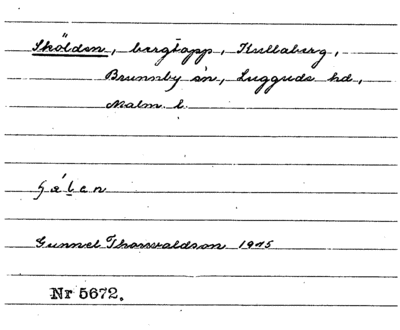 Skölden, bergtopp, Kullaberg,
Brunnby sn, Luggude hd,
Malm. l.
Gunnel Thorvaldson 1945
Nr 5672.